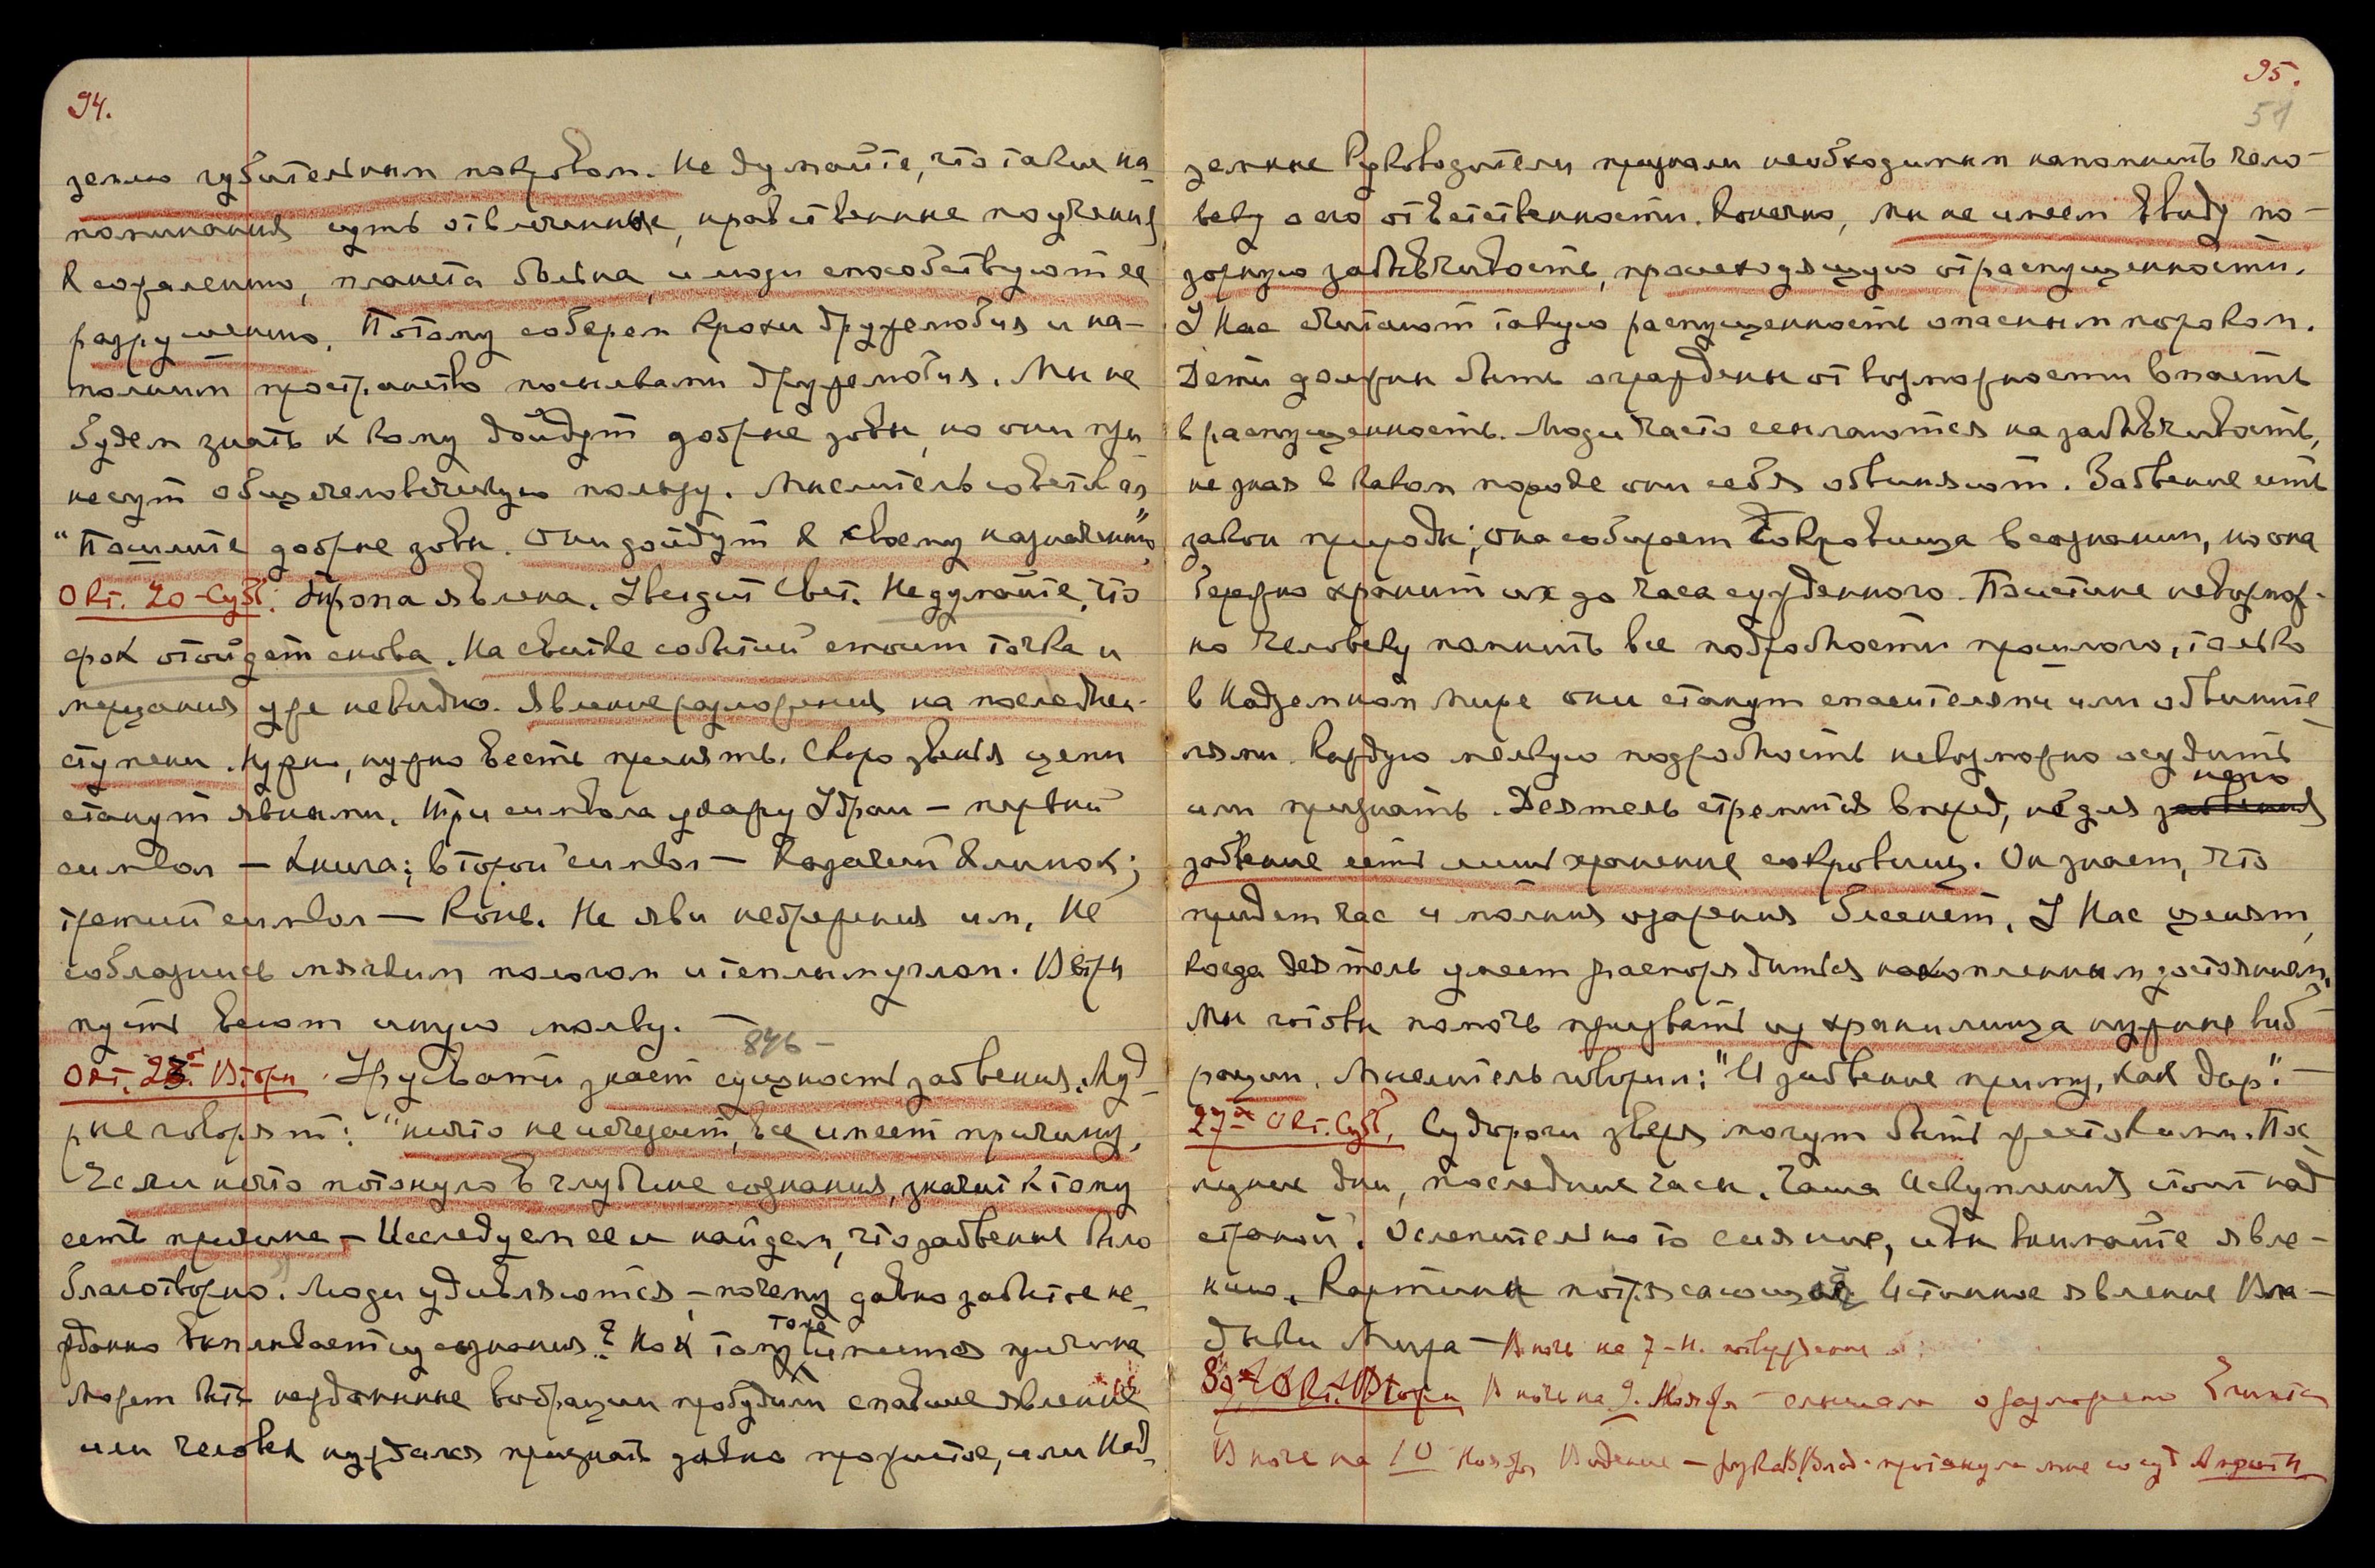 94.
землю губительным покровом. Не думайте, что такие на-
поминания суть отвлеченные, нравственные поучения
К сожалению, планета больна, и люди способствуют ее
разрушению. Потому соберем крохи дружелюбия и на-
полним пространство посылками дружелюбия. Мы не
будем знать к кому дойдут добрые зовы, но они при-
несут общечеловеческую пользу. Мыслитель советовал
"Пошлите добрые зовы. Они дойдут к своему назначению"
Окт. 20-Субб. явлена. Увидит Свет. Не думайте, что
срок отойдет снова. На свитке событий стоит точка и
мерцания уже не видно. Явление разложения на последней
ступени. Нужно, нужно весть принять. Скоро звенья цепи
станут явными. Три символа укажу Избран — первый
символ — Книга; второй символ — Казачий Клинок;
третий символ — Конь. Не яви небрежения им. Не
соблазнись мягким пологом и теплым углом.
пусть вьют иную молву. —
846 —
Окт. 23. Вторн. Урусвати знает сущность забвения. Муд-
рые говорят: "ничто не исчезает, все имеет причину.
Если нечто потонуло в глубине сознания, значит к тому
есть причина — Исследуем ее и найдем, что забвение было
благотворно. Люди удивляются, — почему давно забытое не-
жданно выплывает из сознания? Но к тому тоже имеется причина
Может быть нежданные вибрации пробудили спавшие явления
или человек нуждался признать давно прожитое, или Над-
95.
51
земные Руководители признали необходимым напомнить чело-
веку о его ответственности. Конечно, мы не имеем ввиду по-
зорную забывчивость, происходящую от распущенности.
У Нас считают такую распущенность опасным пороком.
Дети должны быть ограждены от возможности впасть
в распущенность. Люди часто ссылаются на забывчивость,
не зная в каком пороке они себя обвиняют. Забвение есть
закон природы; она собирает сокровища в сознании, но она
бережно хранит их до часа сужденного. Поистине невозмож-
но человеку помнить все подробности прошлого, только
в Надземном Мире они станут спасителями или обвините-
лями. Каждую мелкую подробность невозможно осудить
или признать. Деятель стремится вперед, для него
забвение есть лишь хранение сокровищ. Он знает, что
придет час и молния озарения блеснет. У Нас ценят,
когда деятель умеет распорядиться накопленным достоянием.
Мы готовы помочь призвать из хранилища нужные виб-
рации. Мыслитель говорил: "И забвение приму, как дар". —
27-го Окт. Субб. Судороги зверя могут быть жестокими. Пос-
ледние дни, последние часы. Чаша Искупления стоит над
страной. Ослепительно то сияние, внимайте явле-
нию. Картины потрясающие Истинное явление Вла-
дыки Мира — В ночь на 7-Н.
30 Окт. Вторн В ночь на 9. Ноября — слышала о разложении
В ночь на 10 Ноября Видение — рука Влад. протянула мне сосуд